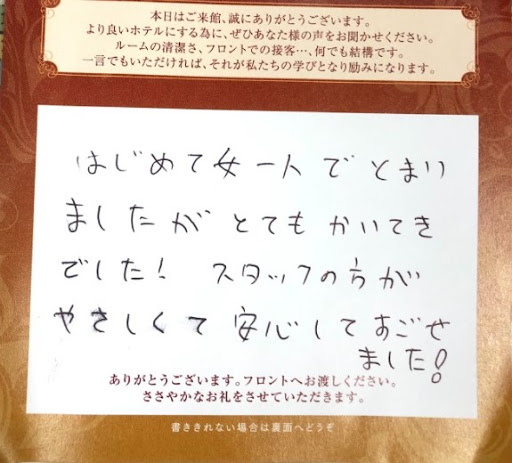 本日はご来館、誠にありがとうございます。
より良いホテルにする為に、ぜひあなた様の声をお聞かせください。
ルームの清潔さ、フロントでの接客…、何でも結構です。
一言でもいただければ、それが私たちの学びとなり励みになります。
はじめて女一人でとまり
ましたがとてもかいてき
でした! スタッフの方が
やさしくて安心してすごせ
ました!
ありがとうございます。フロントへお渡しください。
ささやかなお礼をさせていただきます。
書ききれない場合は裏面へどうぞ